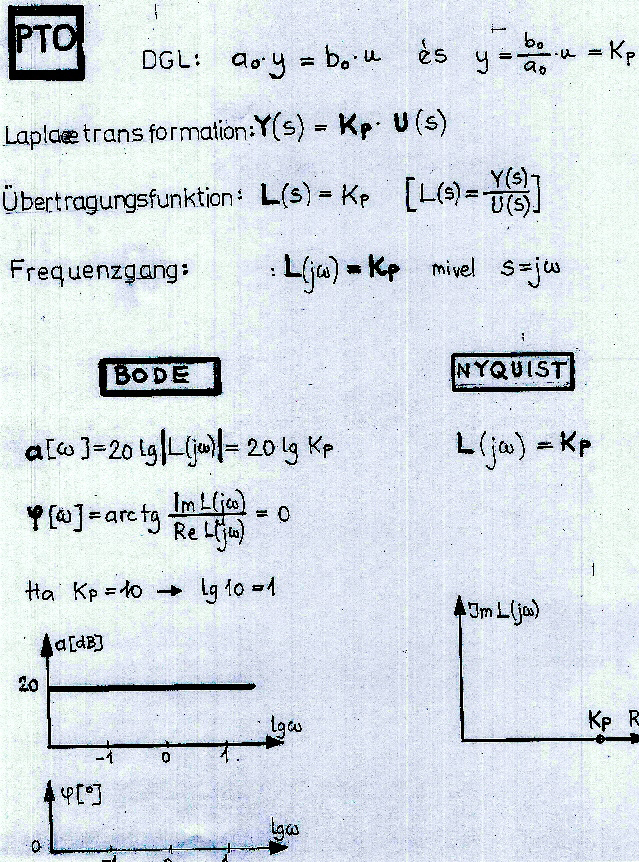 PTO
DGL: a₀·y = b₀·u és y = b₀/a₀·u = Kp
Laplacetransformation: Y(s) = Kp· U(s)
Übertragungsfunktion: L(s) = Kp [L(s)=Y(s)/U(s)]
Frequenzgang: : L(jω) = Kp mivel s=jω
BODE
a[ω]=20 lg|L(jω)|= 20 lg Kp
φ[ω]=arctg Im L(jω)/Re L(jω) = 0
Ha Kp=10 → lg 10=1
a[dB]
20
lgω
-1 0 1
φ[°]
0
lgω
-1 0 1
NYQUIST
L(jω) = Kp
Im L(jω)
Kp R